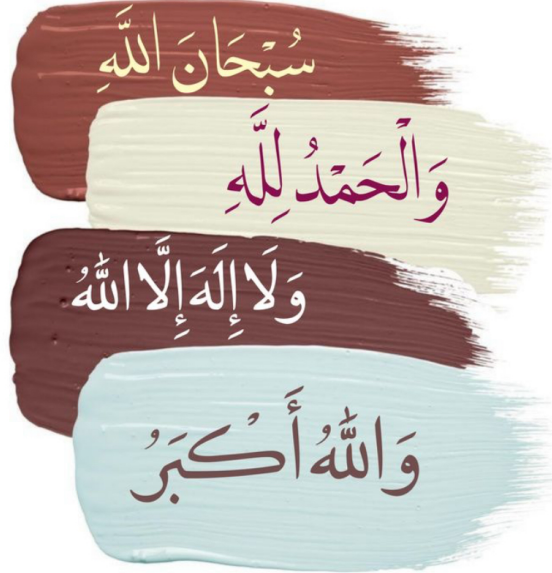 سُبْحَانَ اللَّهِ
وَالْحَمْدُ لِلَّهِ
وَلَا إِلَهَ إِلَّا اللَّهُ
وَاللَّهُ أَكْبَرُ